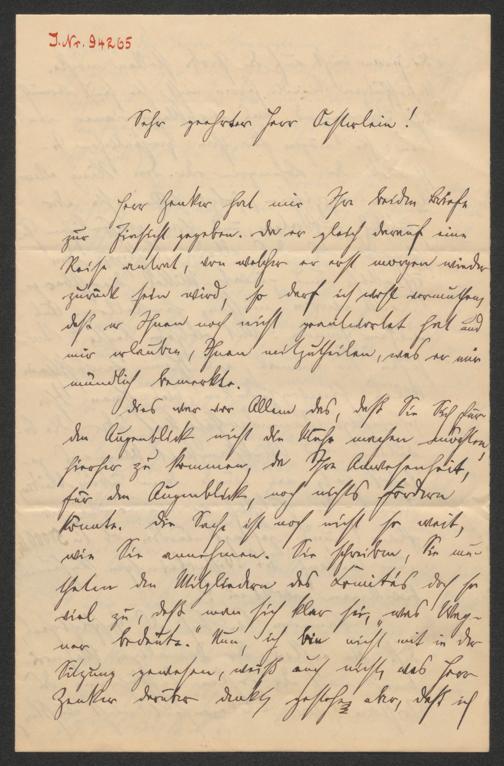 J.Nr. 94265
Sehr geehrter Herr Oesterlein!
Herr Zenker hat mir Ihre beiden Briefe
zur Einsicht gegeben. Da er gleich darauf eine
Reise antrat, von welcher er erst morgen wieder
zurück sein wird, so darf ich wohl vermuthen,
daß er Ihnen noch nicht geantwortet hat und
mir erlauben, Ihnen mitzutheilen, was er mir
mündlich bemerkte.
Dies war vor Allem das, daß Sie Sich für
den Augenblick nicht die Mühe machen möchten,
hierher zu kommen, da Ihre Anwesenheit,
für den Augenblick, noch nichts fördern
könnte. Die Sache ist noch nicht so weit,
wie Sie annehmen. Sie schreiben, Sie mu-
theten den Mitgliedern des Comités doch so
viel zu, daß man sich klar sei, "was Wag-
ner bedeute." Nun, ich bin nicht mit in der
Sitzung gewesen, weiß auch nicht, was Herr
Zenker darüber denkt, gestehe aber, daß ich